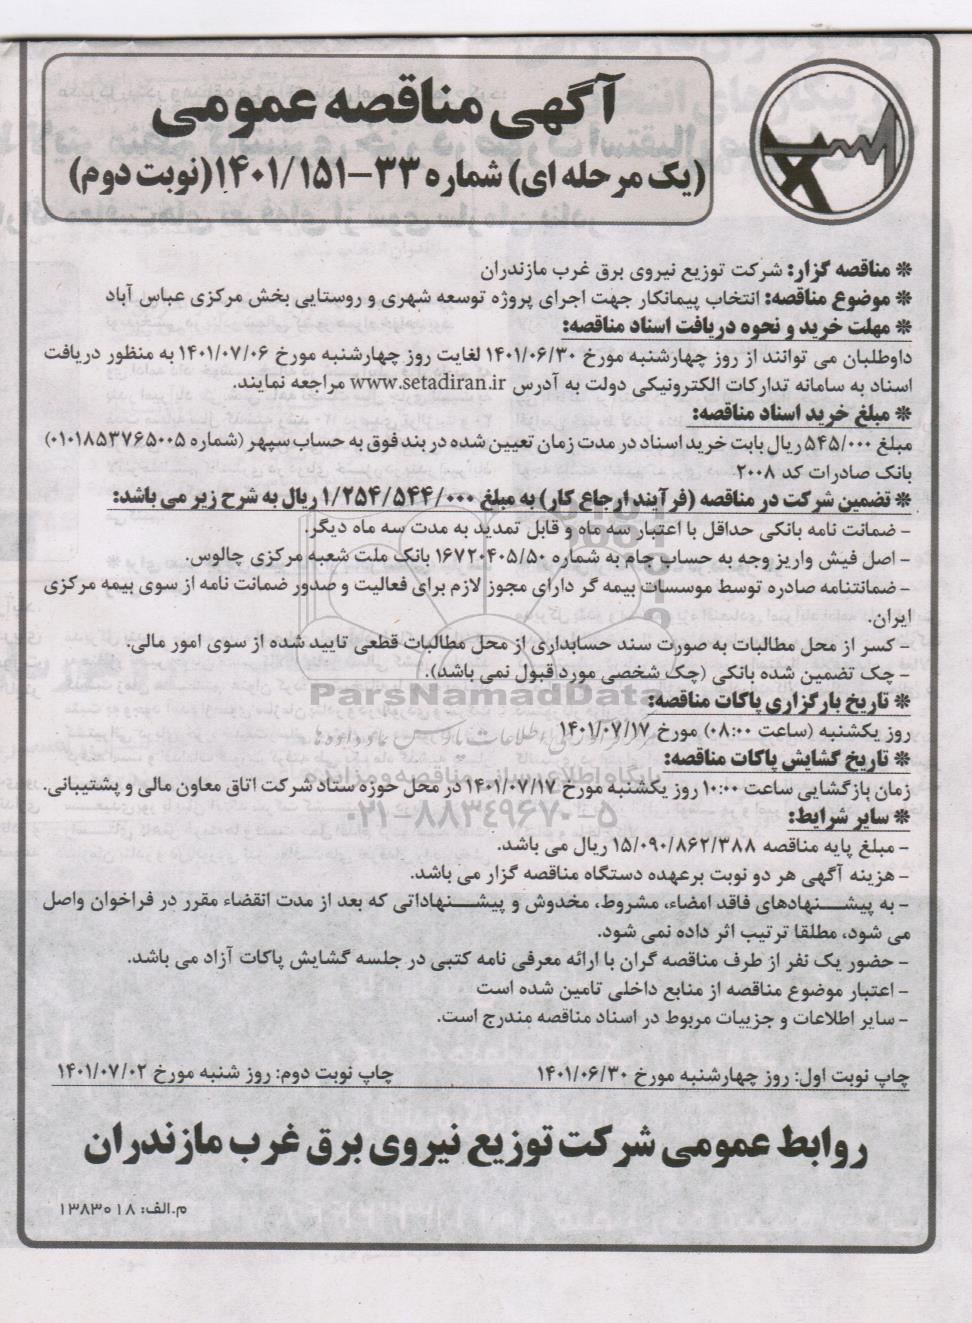 آگهی مناقصه عمومی
(یک مرحله ای) شماره ۳۳-۱۴۰۱/۱۵۱(نوبت دوم)
* مناقصه گزار: شرکت توزیع نیروی برق غرب مازندران
* موضوع مناقصه: انتخاب پیمانکار جهت اجرای پروژه توسعه شهری و روستایی بخش مرکزی عباس آباد
* مهلت خرید و نحوه دریافت اسناد مناقصه:
داوطلبان می توانند از روز چهارشنبه مورخ ۱۴۰۱/۰۶/۳۰ لغایت روز چهارشنبه مورخ ۱۴۰۱/۰۷/۰۶ به منظور دریافت
اسناد به سامانه تدارکات الکترونیکی دولت به آدرس www.setadiran.ir مراجعه نمایند.
* مبلغ خرید اسناد مناقصه:
مبلغ ۵۴۵/۰۰۰ ریال بابت خرید اسناد در مدت زمان تعیین شده در بند فوق به حساب سپهر (شماره ۰۱۰۱۸۵۳۷۶۵۰۰۵)
بانک صادرات کد ۲۰۰۸
* تضمین شرکت در مناقصه (فرآیند ارجاع کار) به مبلغ ۱/۲۵۴/۵۴۴/۰۰۰ ریال به شرح زیر می باشد:
- ضمانت نامه بانکی حداقل با اعتبار سه ماه و قابل تمدید به مدت سه ماه دیگر.
- اصل فیش واریز وجه به حساب جام به شماره ۱۶۷۲۰۴۰۵/۵۰ بانک ملت شعبه مرکزی چالوس.
- ضمانتنامه صادره توسط موسسات بیمه گر دارای مجوز لازم برای فعالیت و صدور ضمانت نامه از سوی بیمه مرکزی
ایران.
- کسر از محل مطالبات به صورت سند حسابداری از محل مطالبات قطعی تایید شده از سوی امور مالی.
- چک تضمین شده بانکی (چک شخصی مورد قبول نمی باشد).
ParsNamadData
* تاریخ بارگزاری پاکات مناقصه:
روز یکشنبه (ساعت ۰۸:۰۰) مورخ ۱۴۰۱/۰۷/۱۷
* تاریخ گشایش پاکات مناقصه:
زمان بازگشایی ساعت ۱۰:۰۰ روز یکشنبه مورخ ۱۴۰۱/۰۷/۱۷در محل حوزه ستاد شرکت اتاق معاون مالی و پشتیبانی.
۰۲۱-۸۸۳۴۹۶۷۰-۵
* سایر شرایط:
- مبلغ پایه مناقصه ۱۵/۰۹۰/۸۶۲/۳۸۸ ریال می باشد.
- هزینه آگهی هر دو نوبت برعهده دستگاه مناقصه گزار می باشد.
- به پیشـــنهادهای فاقد امضاء، مشروط، مخدوش و پیشـــنهاداتی که بعد از مدت انقضاء مقرر در فراخوان واصل
می شود، مطلقا ترتیب اثر داده نمی شود.
- حضور یک نفر از طرف مناقصه گران با ارائه معرفی نامه کتبی در جلسه گشایش پاکات آزاد می باشد.
- اعتبار موضوع مناقصه از منابع داخلی تامین شده است
- سایر اطلاعات و جزییات مربوط در اسناد مناقصه مندرج است.
چاپ نوبت اول: روز چهارشنبه مورخ ۱۴۰۱/۰۶/۳۰ چاپ نوبت دوم: روز شنبه مورخ ۱۴۰۱/۰۷/۰۲
روابط عمومی شرکت توزیع نیروی برق غرب مازندران
م.الف: ۱۳۸۳۰۱۸